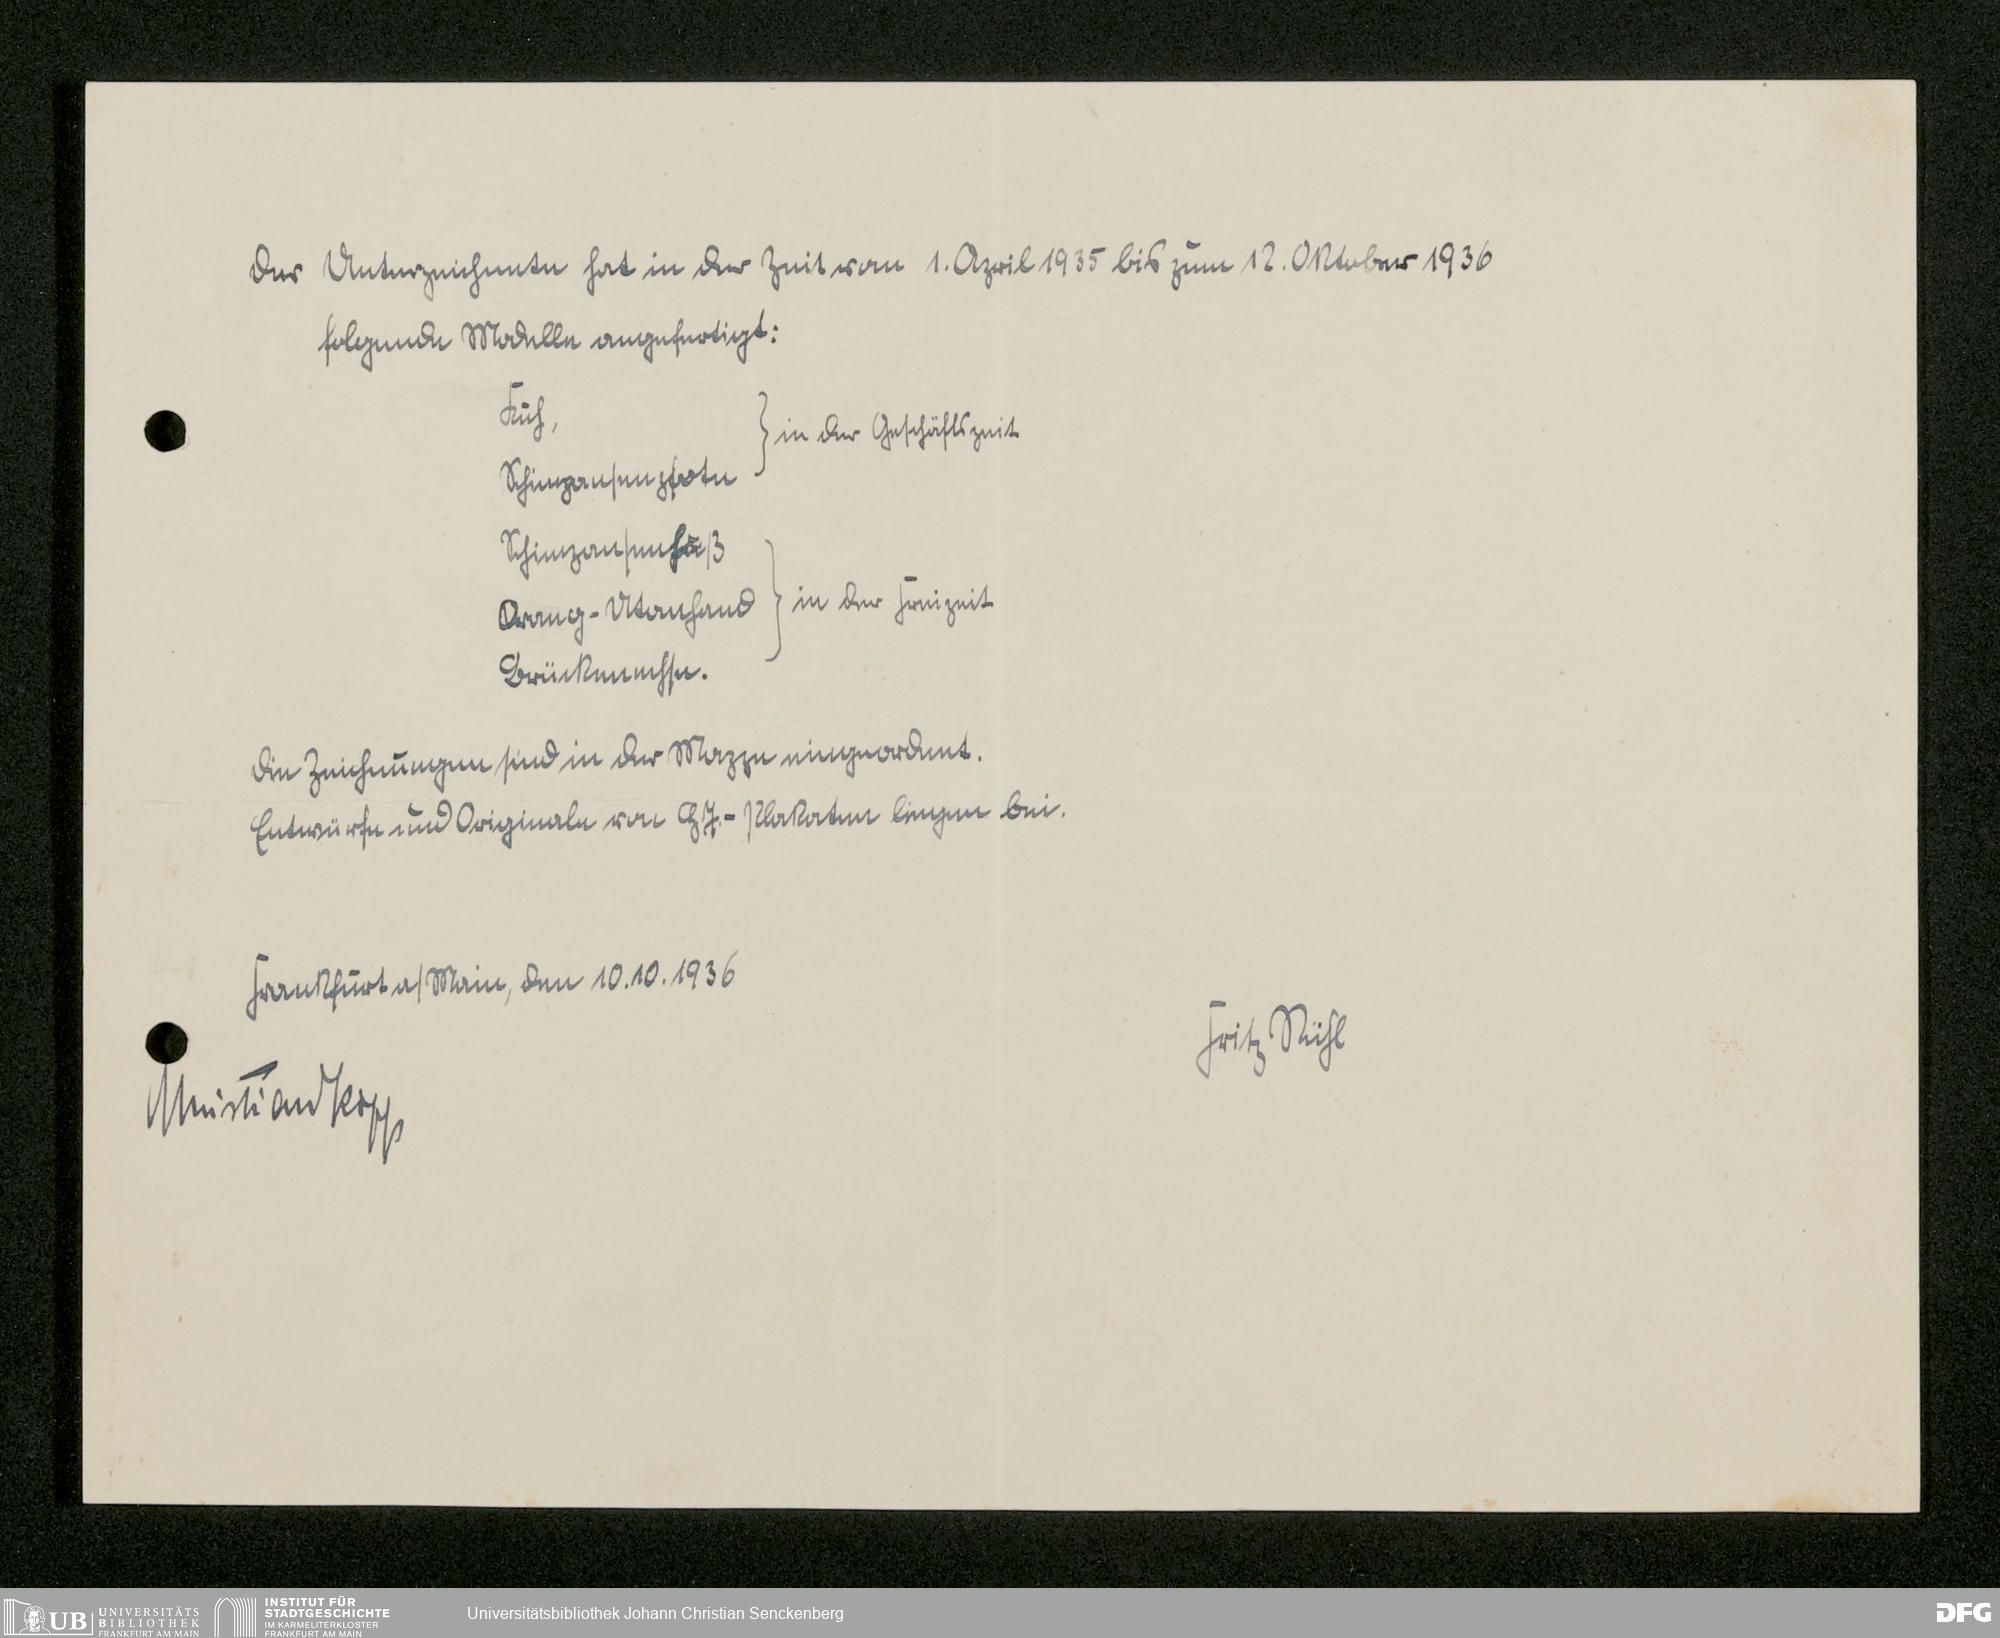 Der Unterzeichnete hat in der Zeit vom 1. April 1935 bis zum 12. Oktober 1936
folgende Modelle angefertigt:
Kuh,
Schimpansenpfote } in der Geschäftszeit
Schimpansenfuß
Orang-Utanhand } in der Freizeit
Brückenechse.
Die Zeichnungen sind in der Mappe eingeordnet.
Entwürfe und Originale von HJ.-Plakaten liegen bei.
Frankfurt a/Main, den 10.10.1936
Fritz Rühl
Christian Kopp
UB UNIVERSITÄTS BIBLIOTHEK FRANKFURT AM MAIN
INSTITUT FÜR STADTGESCHICHTE IM KARMELITERKLOSTER FRANKFURT AM MAIN
Universitätsbibliothek Johann Christian Senckenberg
DFG